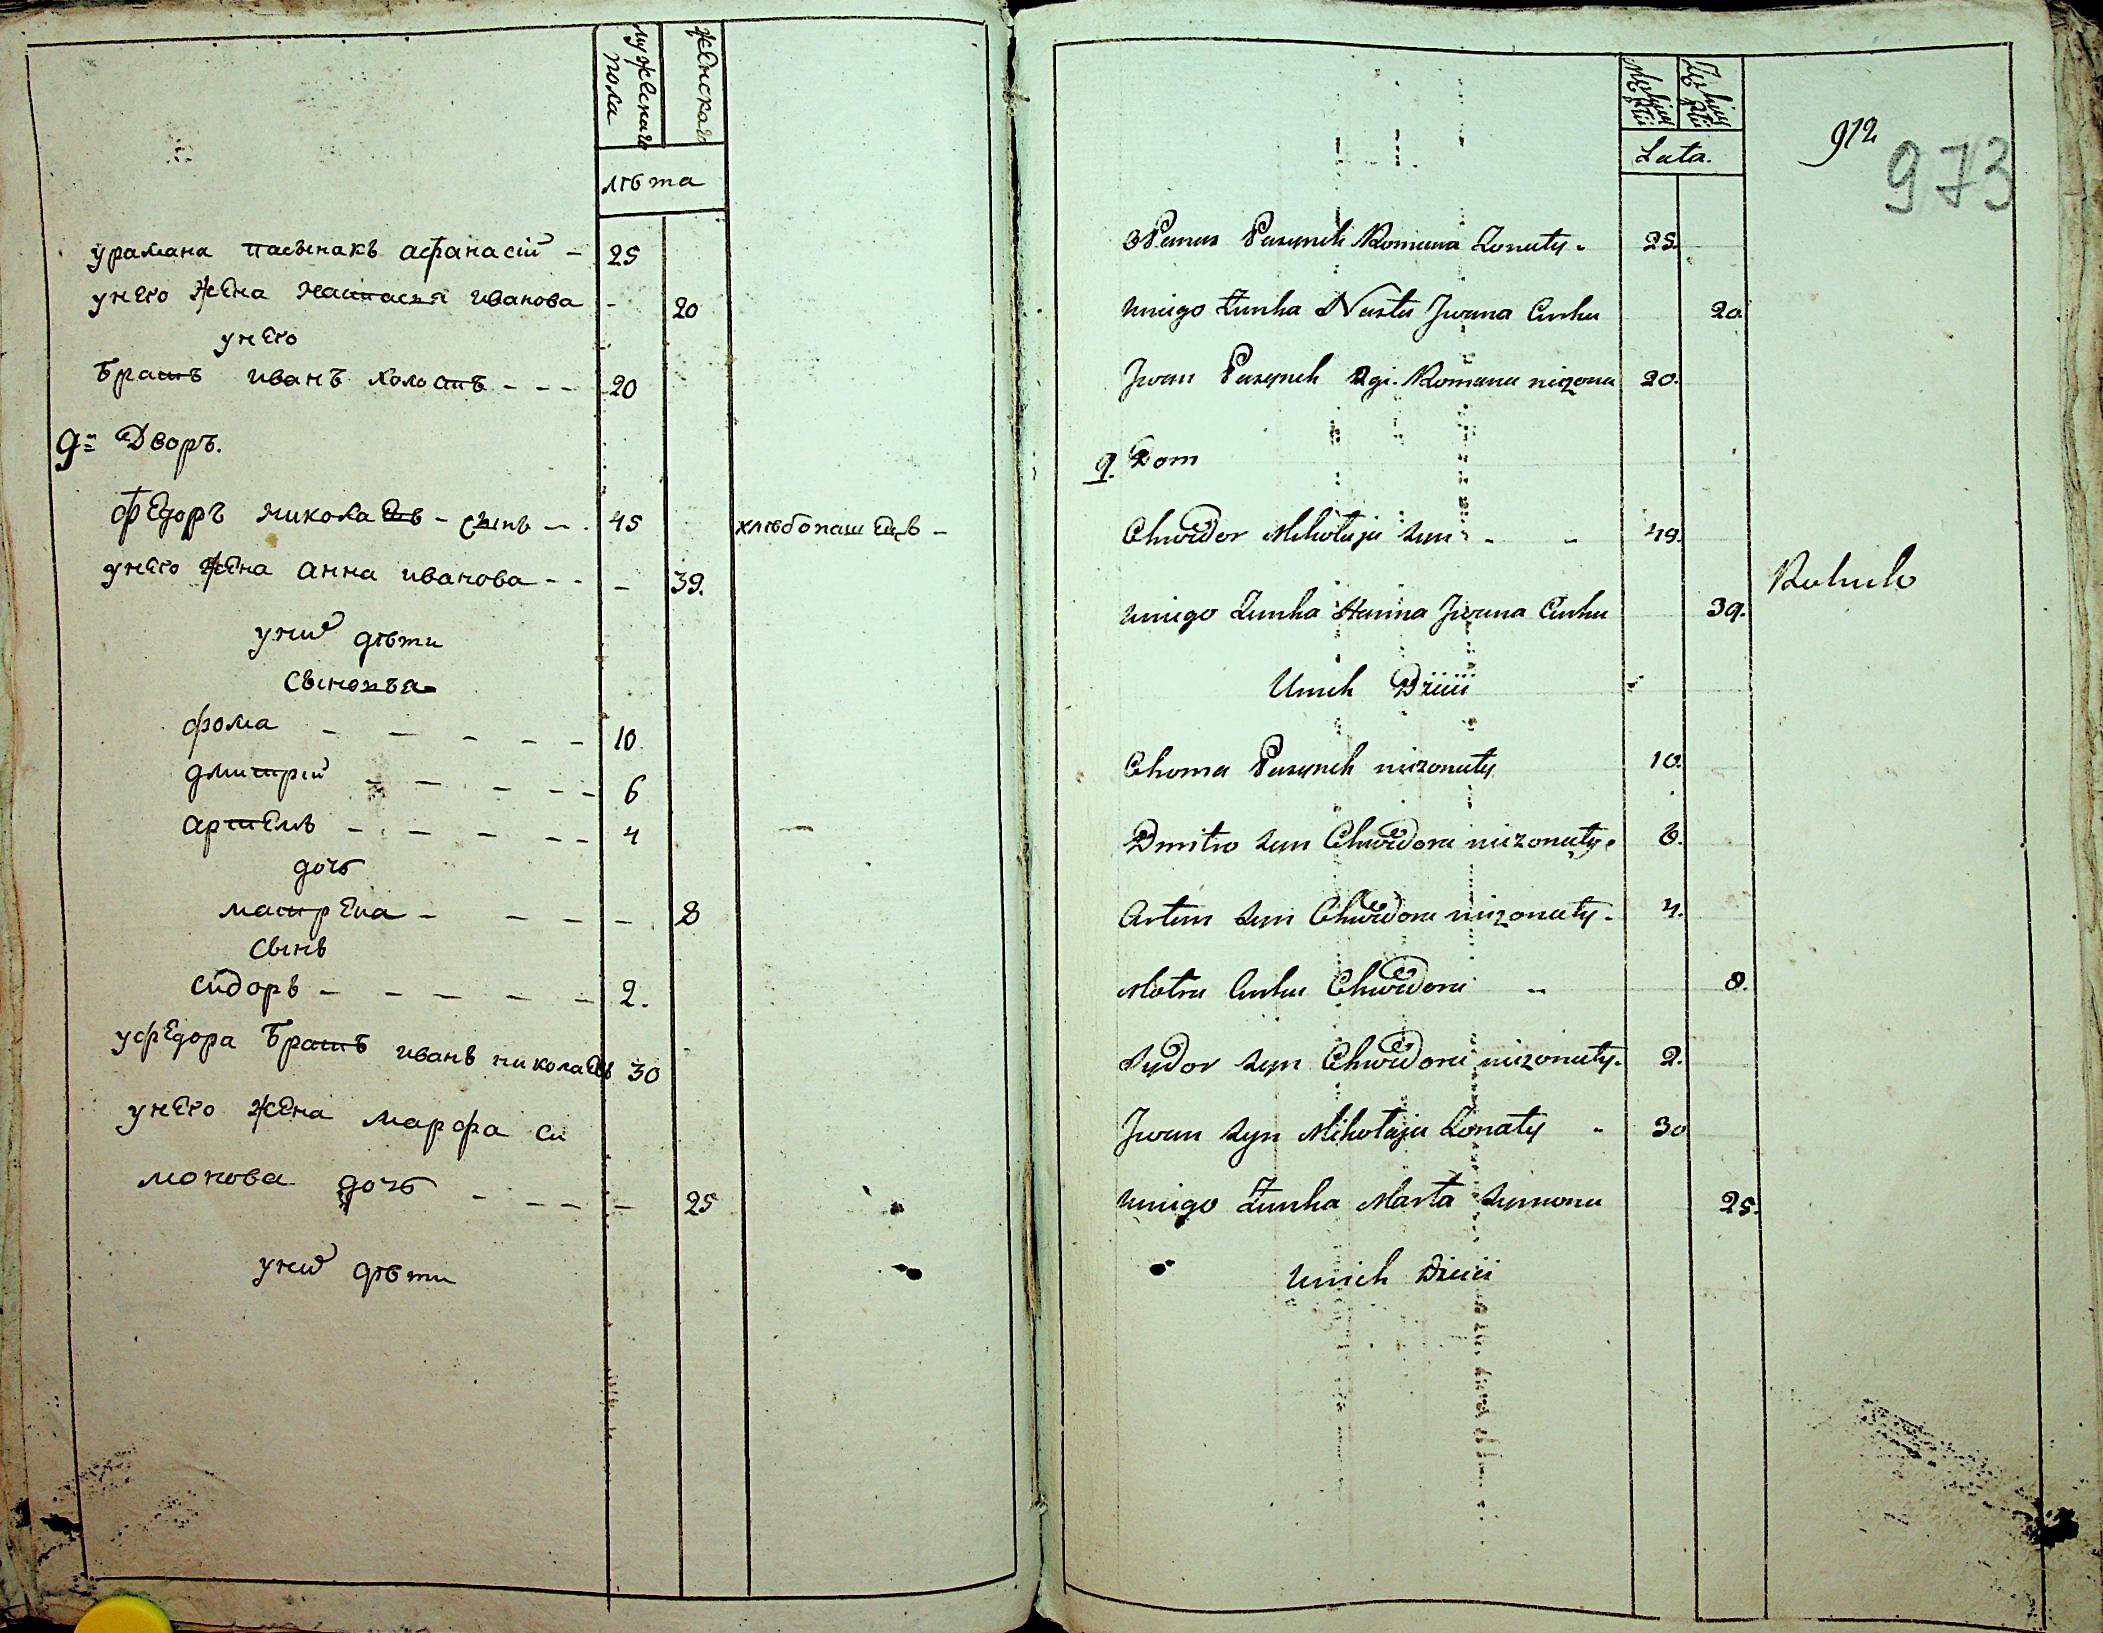 мужескаго пола
женскаго
лѣта
ўрамана пасынакъ афанасій – 25
унего жена настасья иванова - 20
унего
братъ иванъ холостъ - - - 20
9й Дворъ.
федоръ миколаевъ - сынъ - . 45 хлѣбопашецъ -
унего жена анна иванова - - - 39.
уних дѣти
сыновья
фома - - - - - 10.
дмитрій - - - - - 6
артемъ - - - - - 4
дочь
матрена - - - - - 8
сынъ
сидоръ - - - - - 2.
уфедора братъ иванъ николаевъ 30
унего жена марфа си
монова дочь - - - - 25
уних дѣти
Męskiej Płci
Żęńskiej Płci
Lata.
912
973
Panas Pasynek Romana Żonaty. 25.
uniego Żunka Nasta Jwana Curka 20.
Jwan Pasynek 2gi. Romana nieżona 20.
9. Dom
Chwedor Mikołaja syn - - 49.
Rolnik
uniego Żunka Hanna Jwana Curka 39.
Unich Dzieci
Choma Pasynek nieżonaty 10.
Dmitro syn Chwedora nieżonaty. 6.
Artem syn Chwedora nieżonaty. 4.
Motra Curka Chwedora - 8.
Sydor syn Chwedora nieżonaty. 2.
Jwan syn Mikołaja Żonaty - 30
uniego Żunka Marta Symona 25.
Unich Dzieci